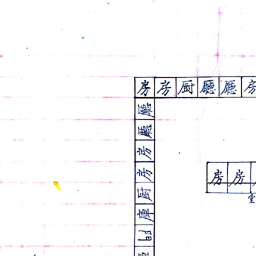 房房厨廳廳房
廳
廳
房
房
厨
庫
房房